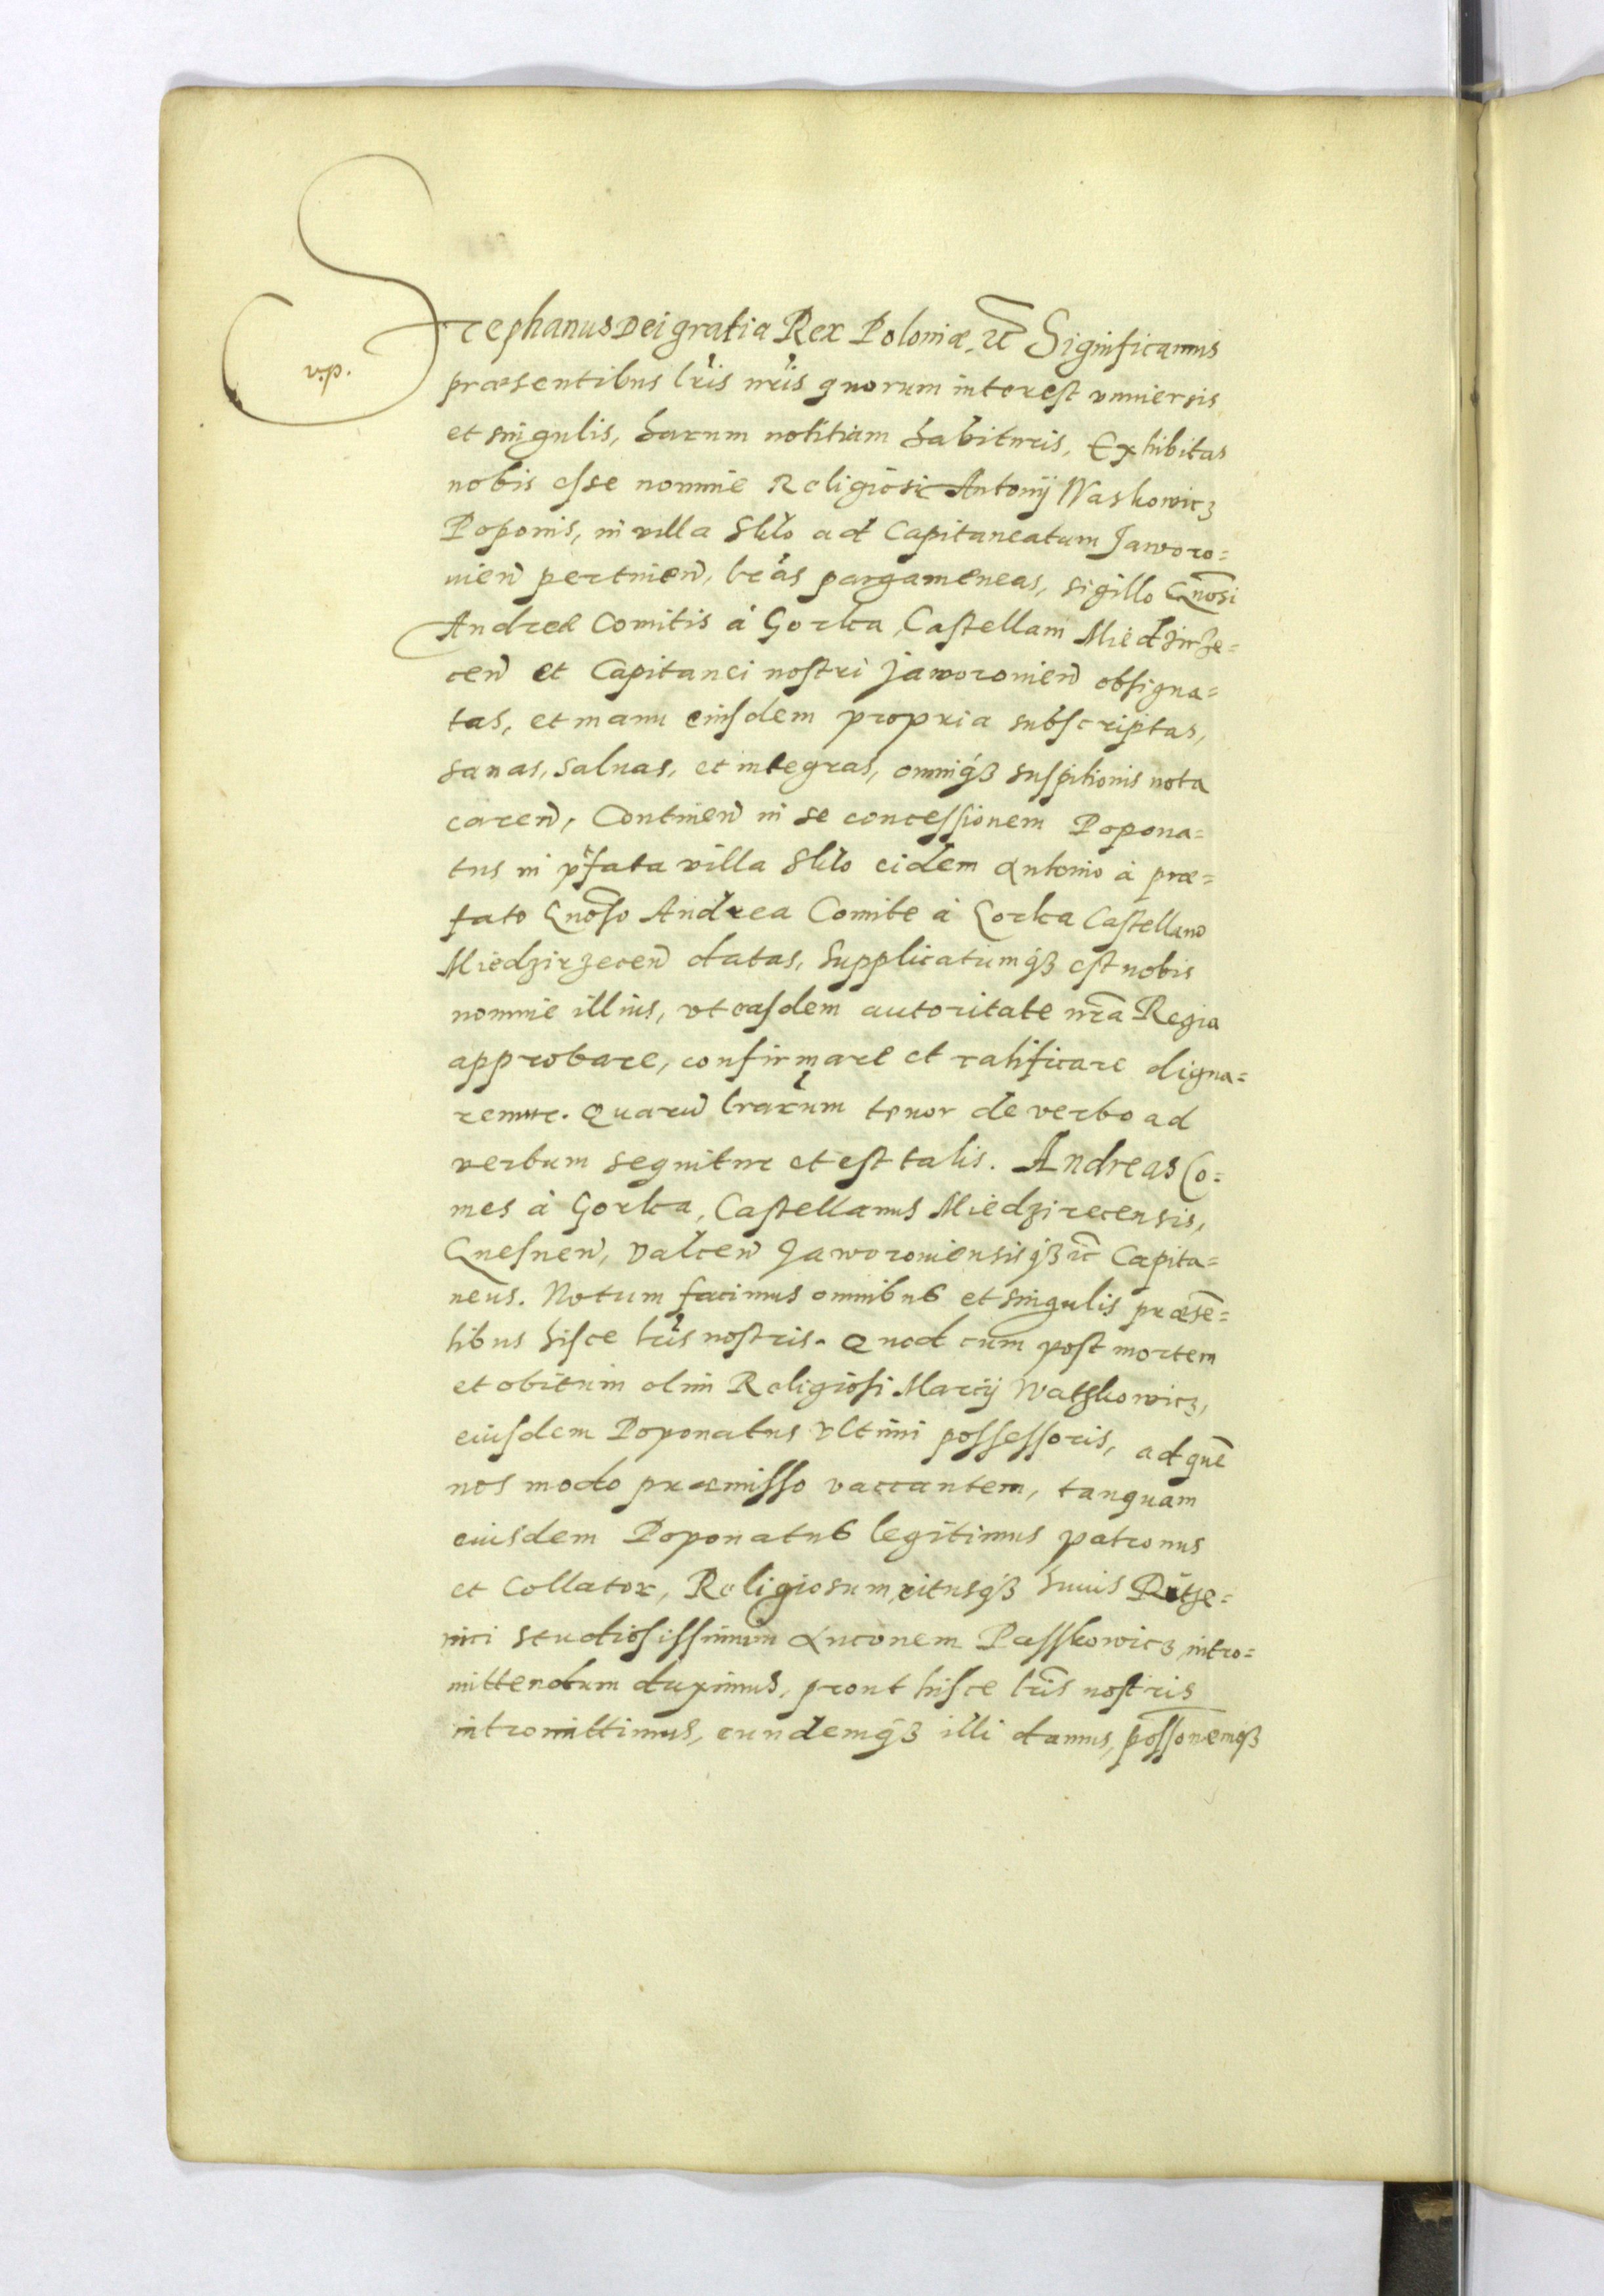 Stephanus Dei gratia Rex Poloniæ, etc̃ Significamus
v.p.
præsentibus lr̃is nr̃is quorum interest vniuersis
et singulis, harum notitiam habituris, Exhibitas
nobis esse nomine Religiosi Antonij Waskowicz
Poponis, in villa Sklo ad Capitaneatum Jaworo=
uien̄ pertinen̄, lr̃as pargameneas, sigillo Gn̄osi
Andreæ Comitis à Gorka, Castellani Miedzirze=
cen̄ et Capitanei nostri Jaworouien̄ obsigna=
tas, et manu eiusdem propria subscriptas,
sanas, saluas, et integras, omniqȝ suspitionis nota
caren̄, Continen̄ in se concessionem Popona=
tus in p̃fata villa Sklo eidem Antonio à præ=
fato Gn̄oso Andrea Comite à Gorka Castellano
Miedzirzecen̄ datas, Supplicatumqȝ est nobis
nomine illius, vt easdem autoritate nr̃a Regia
approbare, confirmare et ratificare digna=
remur. Quarū lr̃arum tenor de verbo ad
verbum sequitur et est talis. Andreas Co=
mes à Gorka, Castellanus Miedzirecensis,
Gnesnen̄, Valcen̄ Jaworouiensisqȝ etc̃ Capita=
neus. Notum facimus omnibus et singulis præsē=
tibus hisce lr̃is nostris. Quod cum post mortem
et obitum olim Religiosi Marcij Watzkowicz,
eiusdem Poponatus vltimi possessoris, ad quē
nos modo præmisso vaccantem, tanquam
eiusdem Poponatus legitimus patronus
et Collator, Religiosum, ritusqȝ huius
studiosissimum Antonem Passkowicz, intro=
mittendum duximus, prout hisce lr̃is nostris
intromittimus, eundemqȝ illi damus, poss̄onemqȝ